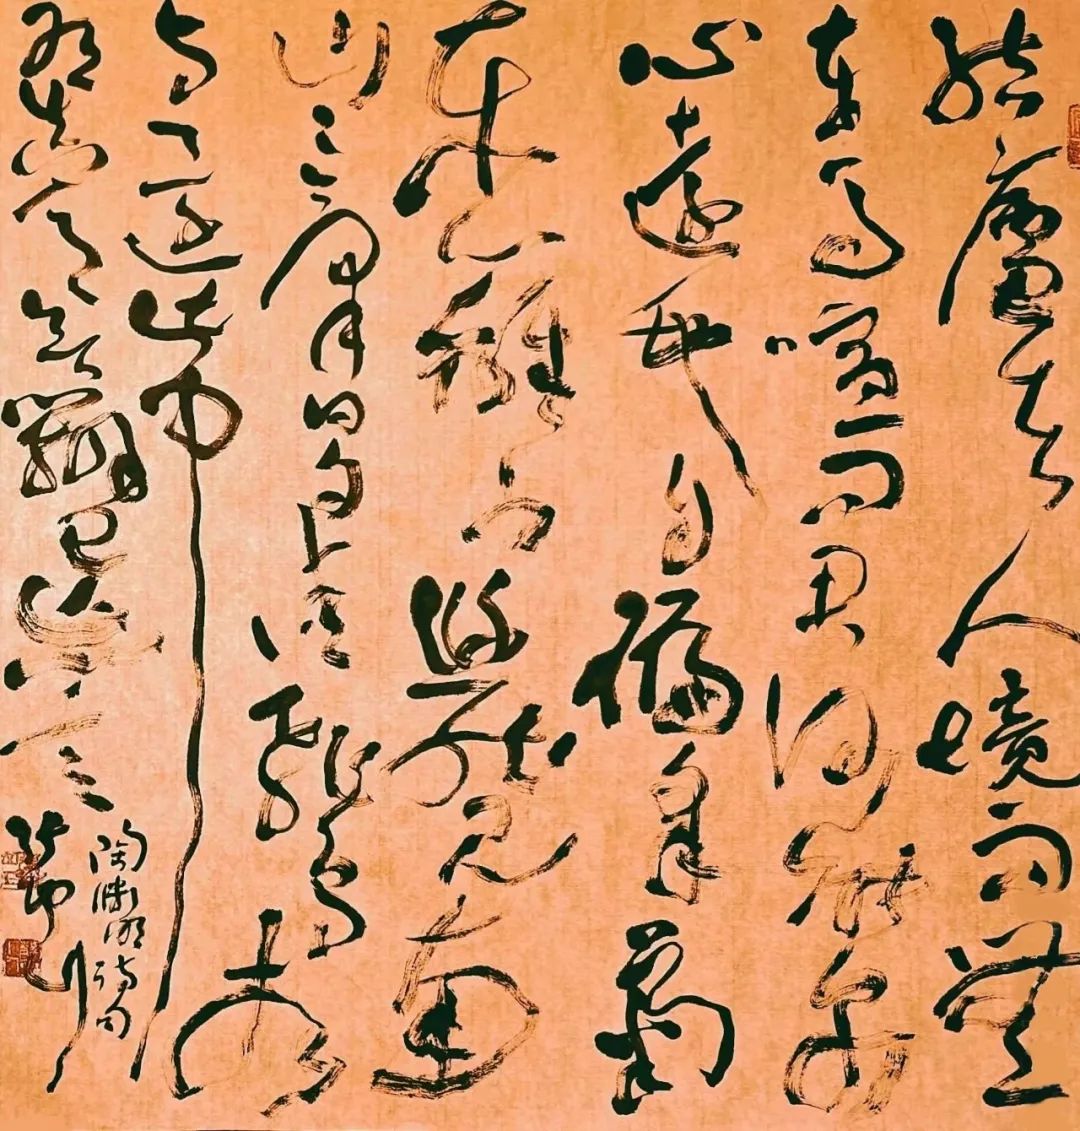 結廬在人境而無
車馬喧問君何能爾
心遠地自偏采菊
東籬下悠然見南
山〻氣日夕佳飛鳥相
与還此中
有真意欲辯已忘言
陶淵明詩句